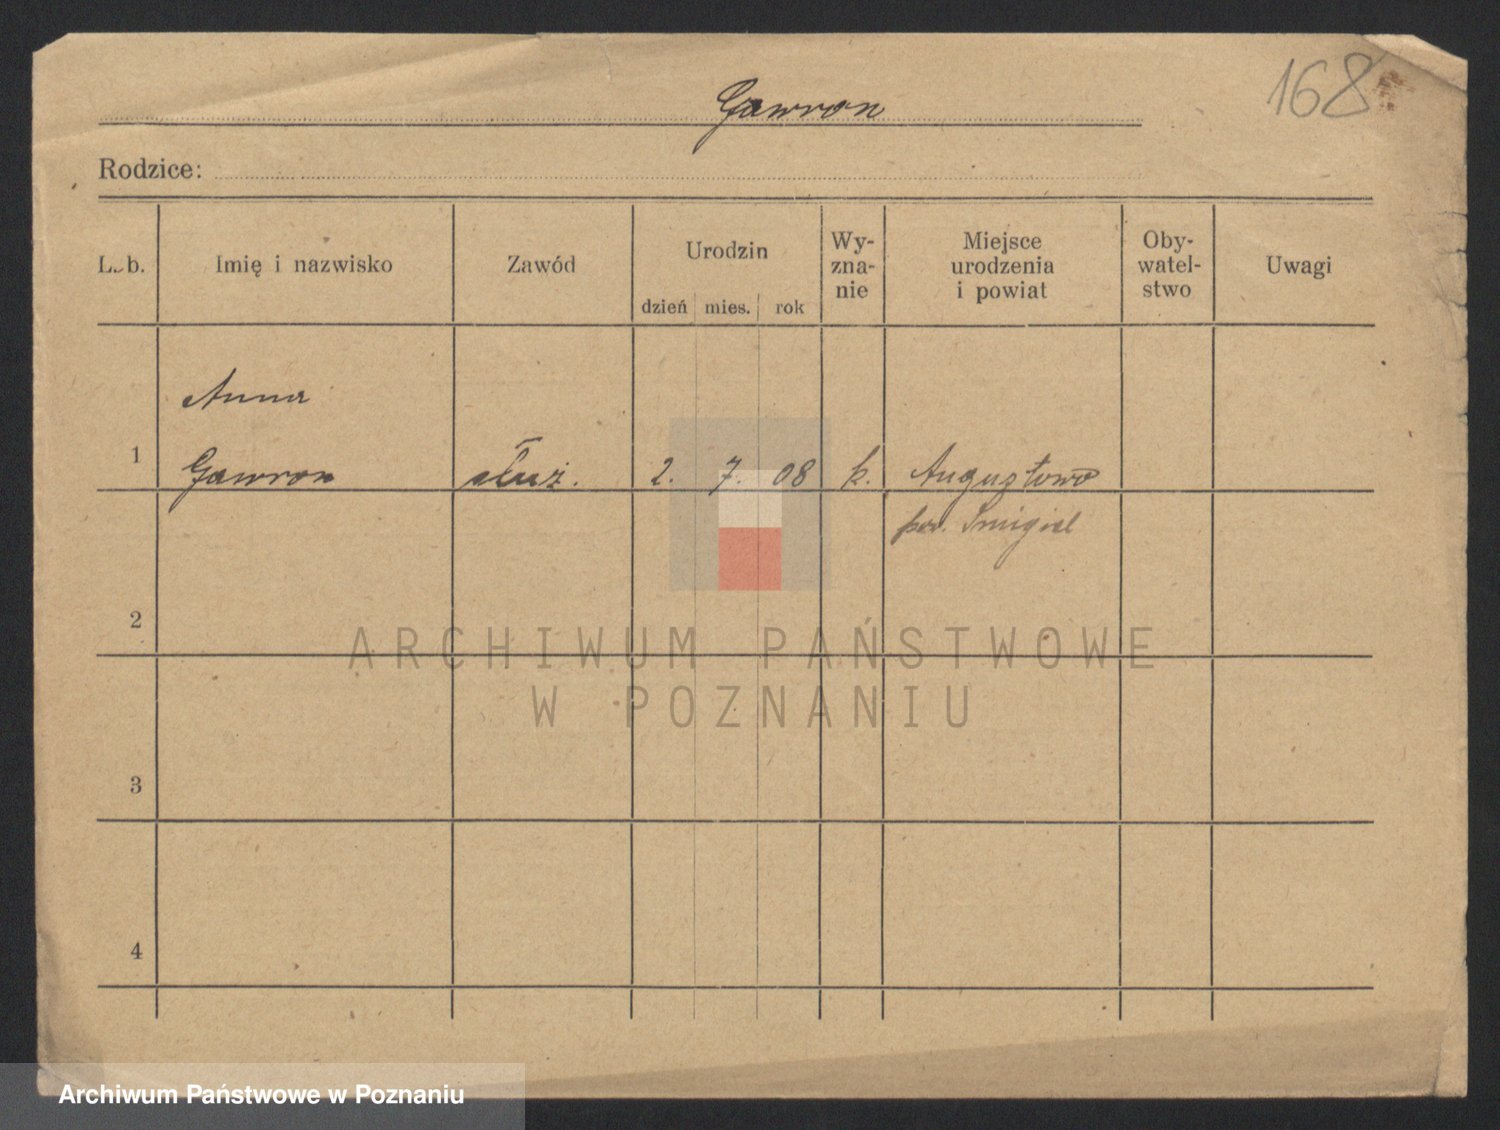 168
Gawron
Rodzice:
L. b.
Imię i nazwisko
Zawód
Urodzin
dzień mies. rok
Wy-
zna-
nie
Miejsce
urodzenia
i powiat
Oby-
watel-
stwo
Uwagi
Anna
1 Gawron służ. 2. 7. 08 k. Augustowo
pow. Śmigiel
2
ARCHIWUM PAŃSTWOWE
W POZNANIU
3
4
Archiwum Państwowe w Poznaniu